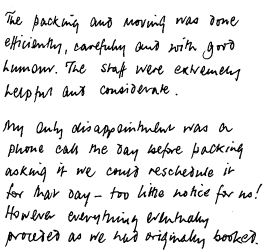 The packing and moving was done
efficiently, carefully and with good
humour. The staff were extremely
helpful and considerate.
My only disappointment was a
phone call the day before packing
asking if we could reschedule it
for that day – too little notice for us!
However everything eventually
proceeded as we had originally booked.